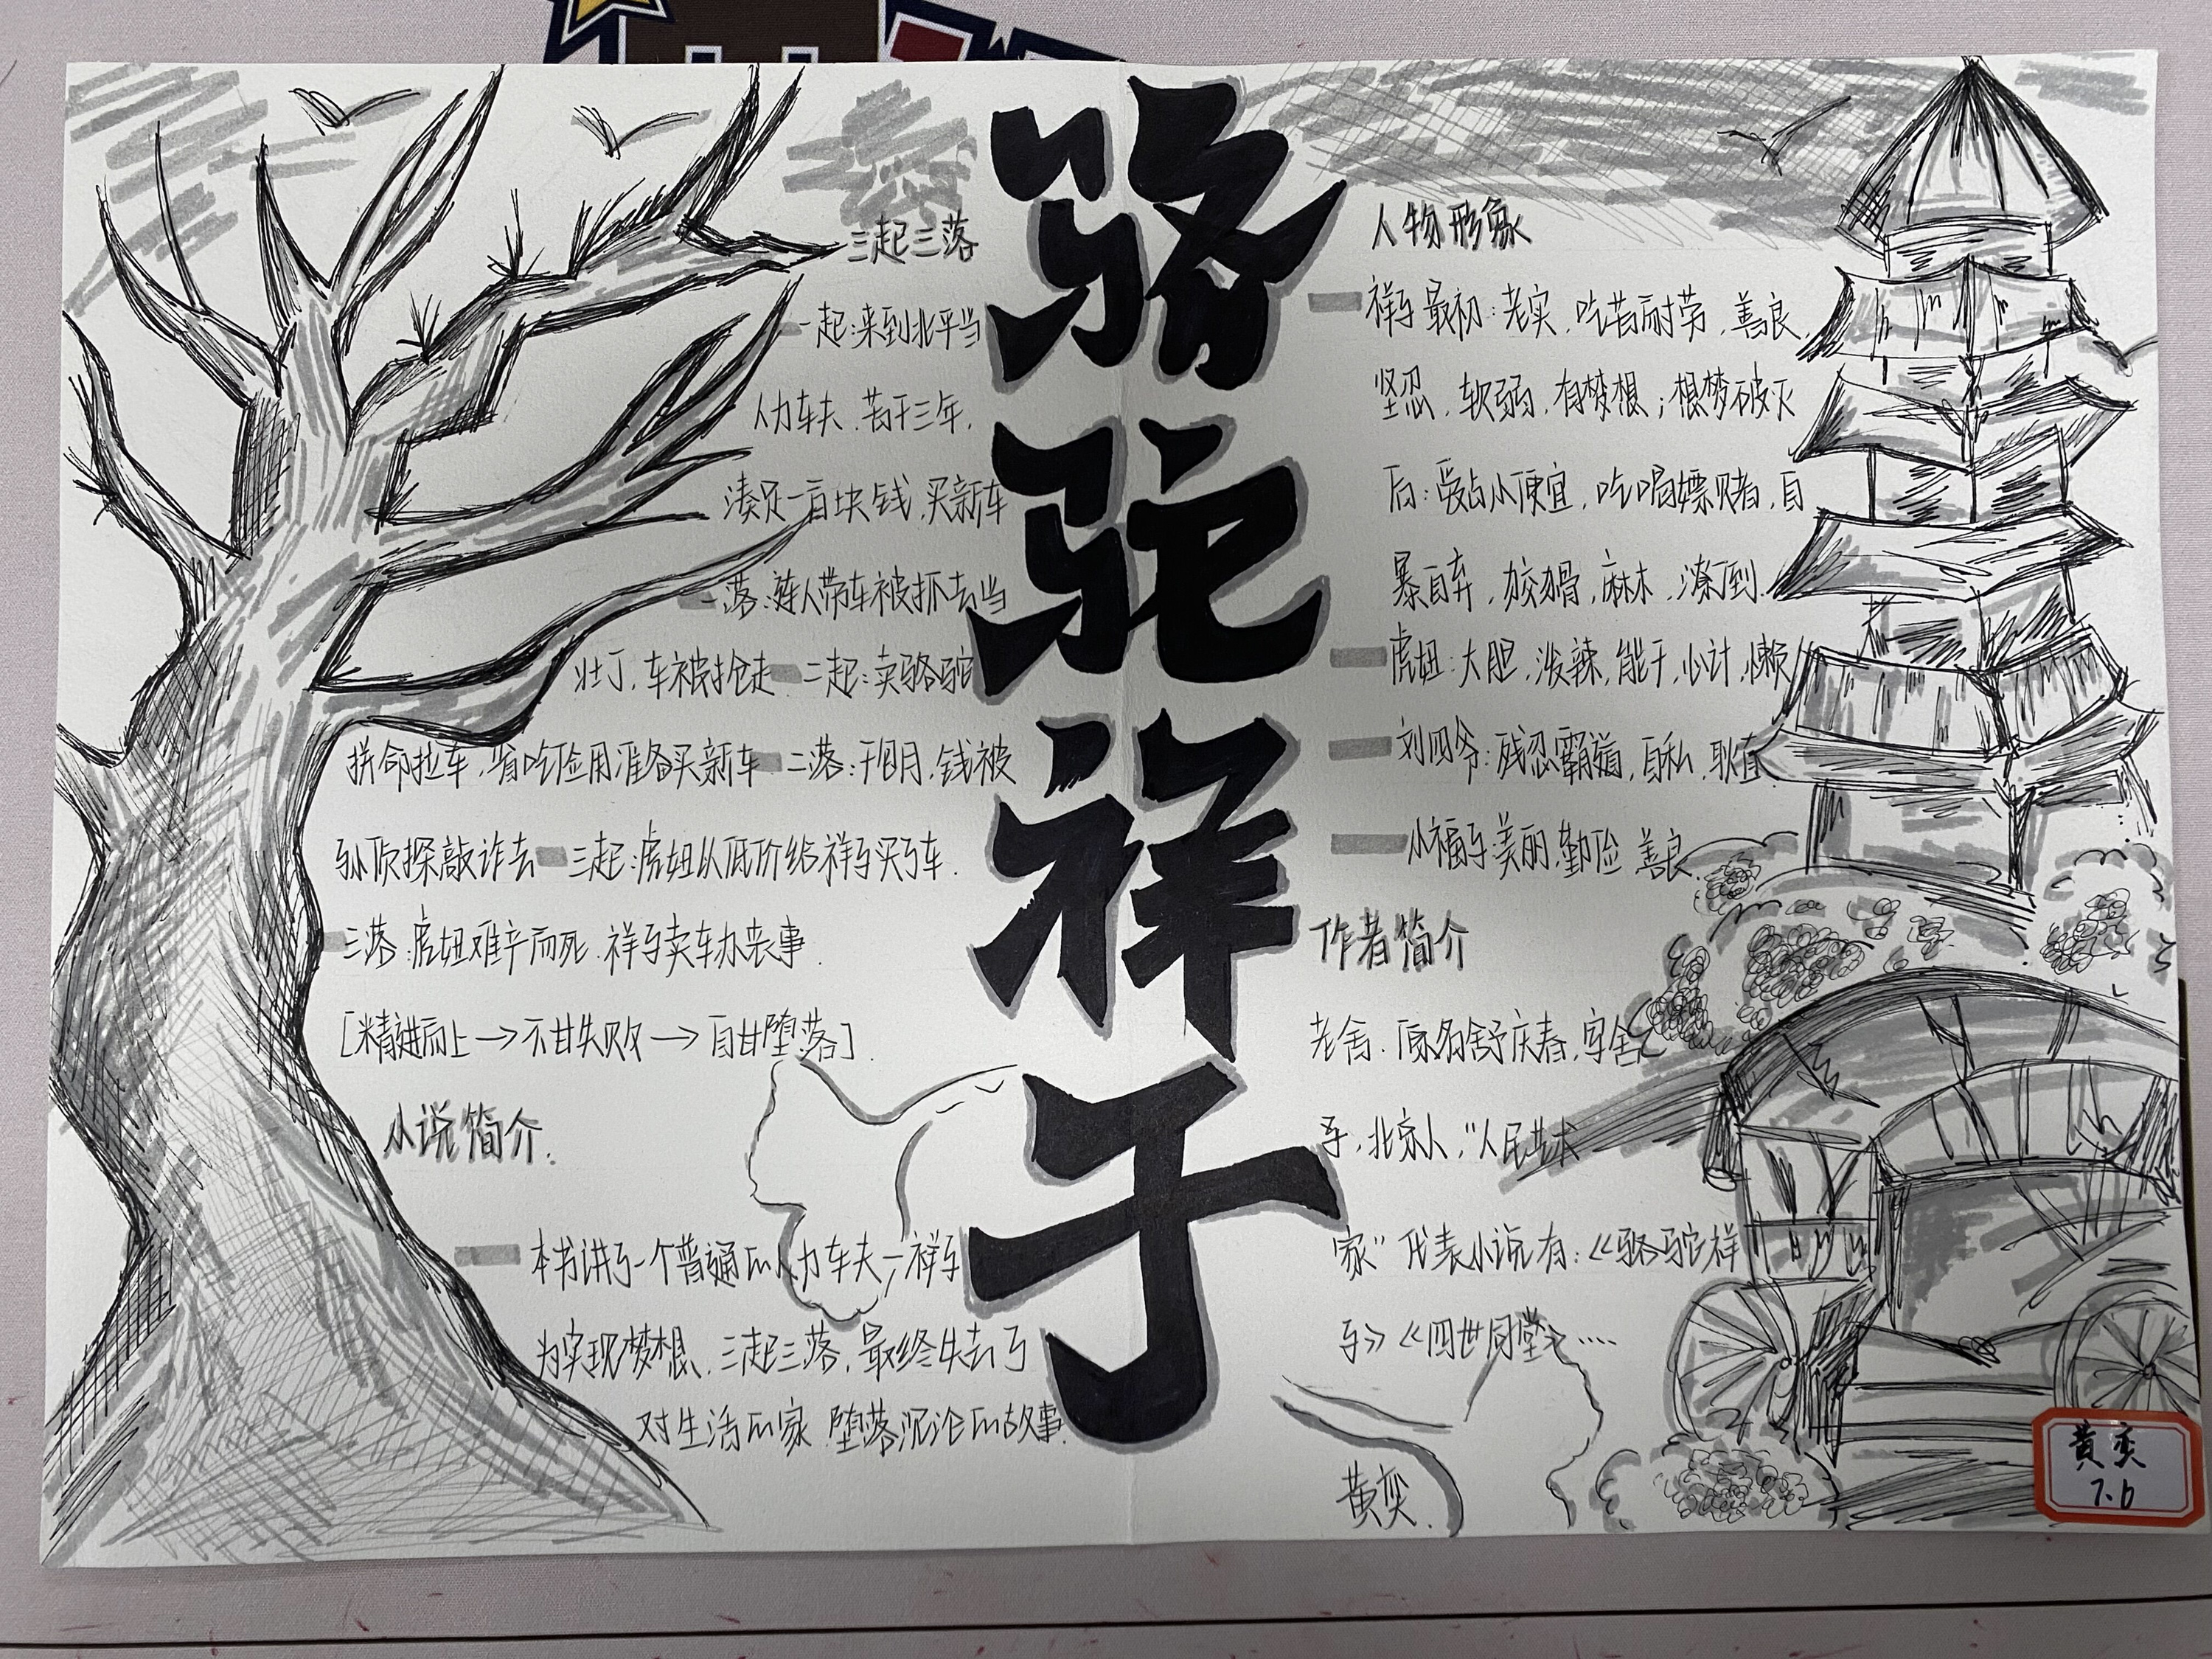 骆驼祥子
三起三落
一起:来到北平当
人力车夫.苦干三年,
凑足一百块钱,买新车
一落:连人带车被抓去当
壮丁,车被抢走 二起:卖骆驼
拼命拉车,省吃俭用准备买新车 二落:干包月,钱被
孙侦探敲诈去 三起:虎妞以低价给祥子买了车.
三落:虎妞难产而死.祥子卖车办丧事.
[精进向上→不甘失败→自甘堕落].
小说简介.
本书讲了一个普通的人力车夫—祥子
为实现梦想,三起三落,最终失去了
对生活的家 堕落沉沦的故事.
人物形象
祥子最初:老实,吃苦耐劳,善良,
坚忍,软弱,有梦想;想梦破灭
后:爱占小便宜,吃喝嫖赌,自
暴自弃,狡猾,麻木,潦倒.
虎妞:大胆,泼辣,能干,心计,懒
刘四爷:残忍霸道,自私,耿直.
小福子:美丽,勤俭 善良.
作者简介
老舍.原名舒庆春,字舍
予,北京人,"人民艺术
家"代表小说有:《骆驼祥
子》《四世同堂》……
黄奕.
黄奕
7.6